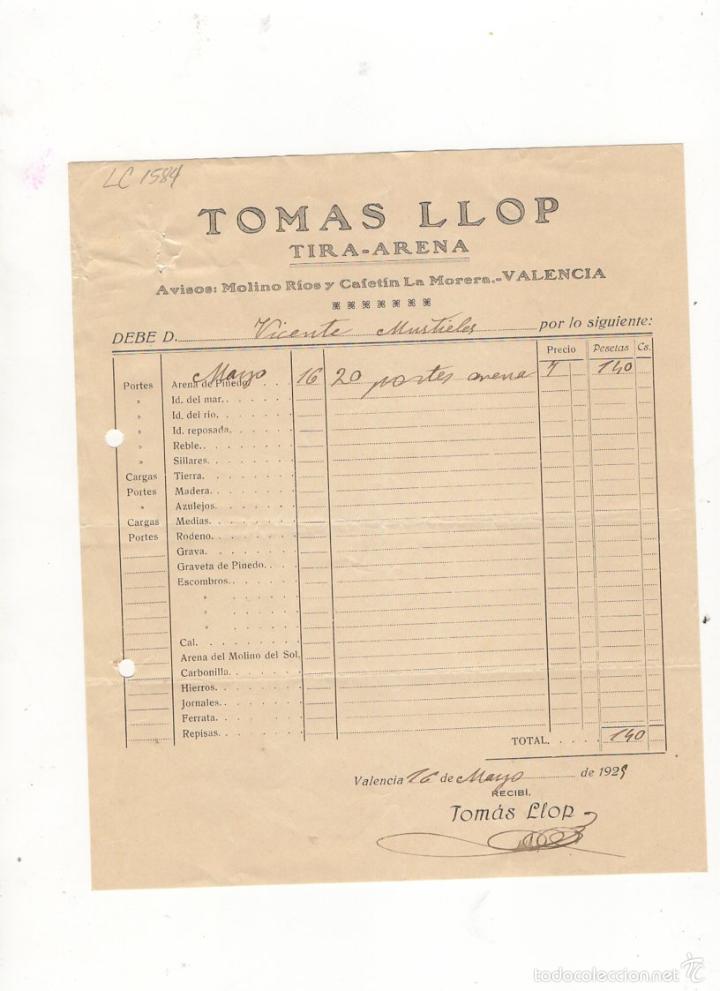 LC 1584
TOMAS LLOP
TIRA-ARENA
Avisos: Molino Ríos y Cafetín La Morera.-VALENCIA
DEBE D. Vicente Mustieles por lo siguiente:
Precio Pesetas Cs.
Mayo 16 20 portes arena 7 140
Portes Arena de Pinedo
» Id. del mar.
» Id. del río.
» Id. reposada.
» Reble.
» Sillares.
Cargas Tierra.
Portes Madera.
» Azulejos.
Cargas Medias.
Portes Rodeno.
Grava.
Graveta de Pinedo.
Escombros.
»
»
»
Cal.
Arena del Molino del Sol.
Carbonilla.
Hierros.
Jornales.
Ferrata.
Repisas.
TOTAL. 140
Valencia 16 de Mayo de 1929
RECIBÍ,
Tomás Llop
todocoleccion.net